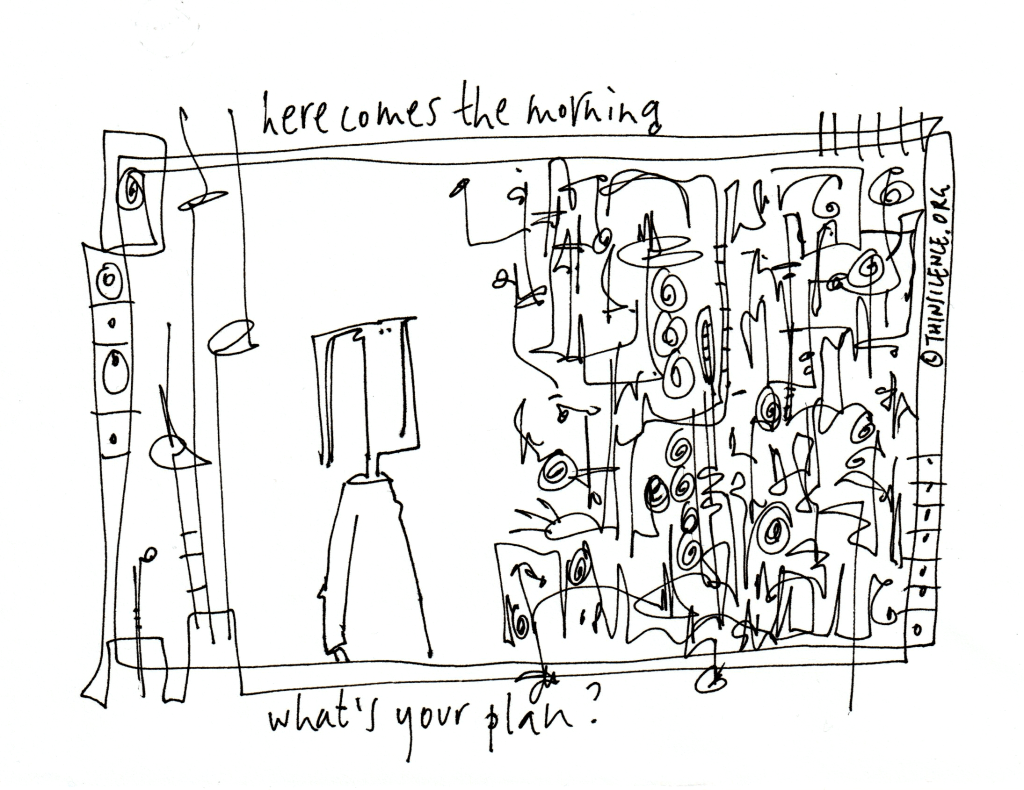 here comes the morning
©THINSILENCE.ORG
what's your plan?